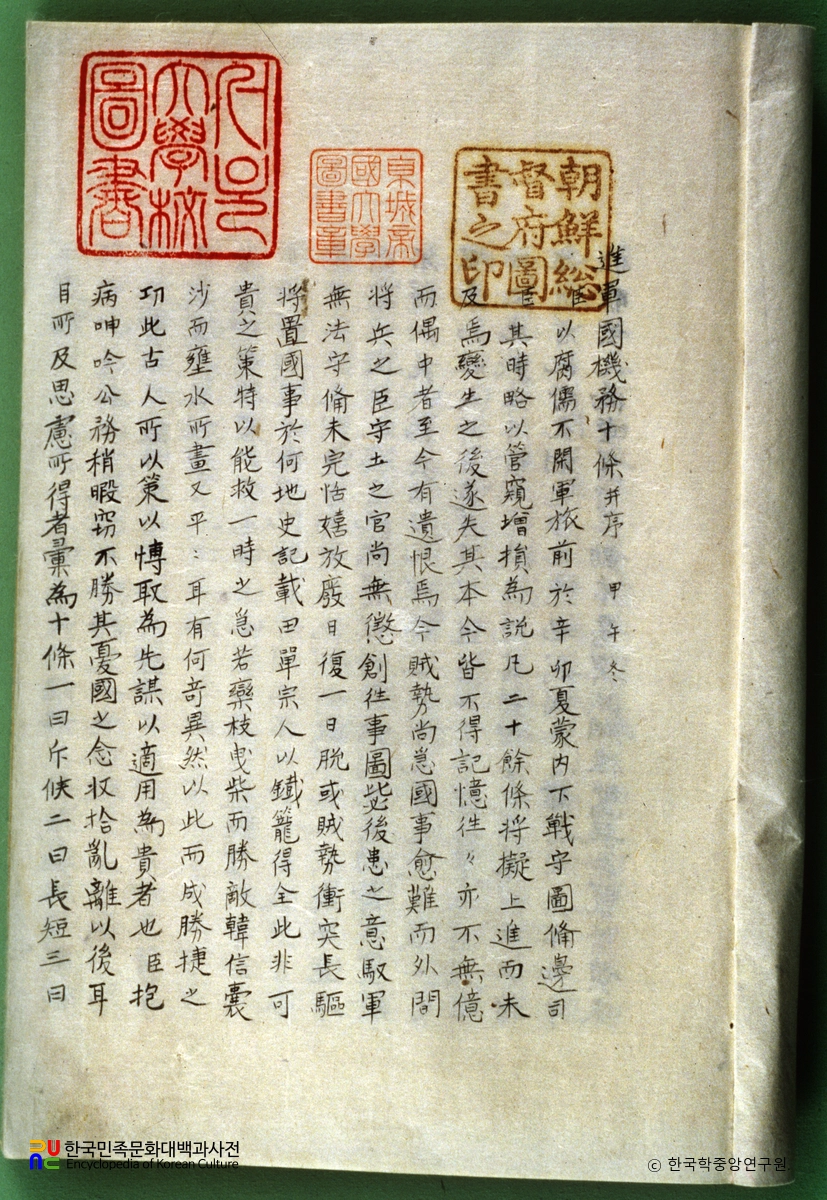 朝鮮総
督府圖
書之印
京城帝
國大學
圖書章
大學校
圖書
進軍國機務十條并序 甲午冬
臣以腐儒不閑軍旅前於辛卯夏蒙內下戰守圖俻邊司
臣其時略以管窺增損為説凡二十餘條將擬上進而未
及焉變生之後遂失其本今皆不得記憶徃々亦不無億
而偶中者至今有遺恨焉今賊勢尚急國事愈難而外間
將兵之臣守土之官尚無懲創徃事圖毖後患之意馭軍
無法守俻未完恬嬉放廢日復一日脱或賊勢衝突長驅
將置國事於何地史記載田單宗人以鐵籠得全此非可
貴之策特以能救一時之急若欒枝曵柴而勝敵韓信囊
沙而壅水所畫又平〻耳有何奇異然以此而成勝捷之
功此古人所以策以慱取為先謀以適用為貴者也臣抱
病呻吟公務稍暇窃不勝其憂國之念收拾亂離以後耳
目所及思慮所得者彙為十條一曰斥候二曰長短三曰
한국민족문화대백과사전
Encyclopedia of Korean Culture
© 한국학중앙연구원